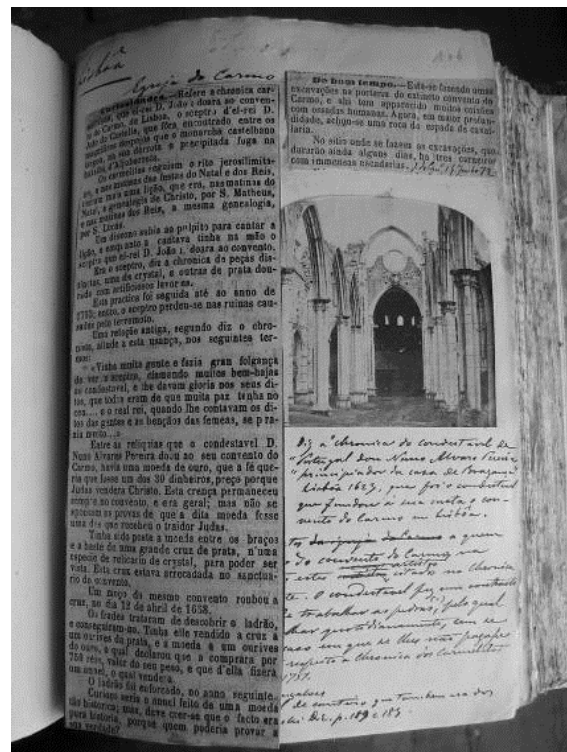 Lisboa
Igreja do Carmo
Curiosidades.—Refere a chronica car-
que el-rei D. João I doara ao conven-
to do Carmo, de Lisboa, o sceptro d'el-rei D.
João de Castella, que fôra encontrado entre os
despojos que o monarcha castelhano
na sua derrota e precipitada fuga na
batalha d'Aljubarrota.
Os carmelitas regulam o rito jerosolimita-
no, e nas matinas das festas do Natal e dos Reis,
uma lição, que era, nas matinas do
Natal, a genealogia de Christo, por S. Matheus,
e nas matinas dos Reis, a mesma genealogia,
por S. Lucas.
Um diacono subia ao pulpito para cantar a
lição, e emquanto a cantava tinha na mão o
sceptro que el-rei D. João I, doara ao convento.
Era o sceptro, diz a chronica de peças dis-
umas de crystal, e outras de prata dou-
rada com artificiosos lavores.
Esta practica foi seguida até ao anno de
1755; anno, o sceptro perdeu-se nas ruinas cau-
sadas pelo terremoto.
Uma relação antiga, segundo diz o chro-
nista, allude a esta usança, nos seguintes ter-
mos:
«Vinha muita gente e fazia gran folgança
de ver o sceptro, clamando muitos bem-hajas
ao condestavel, e lhe davam gloria nos seus di-
tos, que todos eram de que muita paz tenha no
ceo.... e o real rei, quando lhe contavam os di-
tos das gentes e as benções das femeas, se pra-
zia muito...»
Entre as reliquias que o condestavel D.
Nuno Alvares Pereira doou ao seu convento do
Carmo, havia uma moeda de ouro, que a fé que-
ria que fosse um dos 30 dinheiros, preço porque
Judas vendera Christo. Esta crença permaneceu
sempre no convento, e era geral; mas não se
apontam as provas de que a dita moeda fosse
uma das que recebeu o traidor Judas.
Tinha sido posta a moeda entre os braços
e a haste de uma grande cruz de prata, n'uma
especie de relicario de crystal, para poder ser
vista. Esta cruz estava arrecadada no sanctua-
rio do convento.
Um moço do mesmo convento roubou a
cruz, no dia 12 de abril de 1658.
Os frades trataram de descobrir o ladrão,
e conseguiram-no. Tinha elle vendido a cruz a
um ourives da prata, e a moeda a um ourives
do ouro, o qual declarou que a comprara por
750 réis, valor do seu peso, e que d'ella fizera
um annel, o qual vendera.
O ladrão foi enforcado, no anno seguinte.
Curioso seria o annel feito de uma moeda
tão historica; mas, deve crer-se que o facto era
pura historia, porque quem poderia provar a
sua verdade?
Do bom tempo.—Está-se fazendo umas
excavações na porteria do extincto convento do
Carmo, e ahi tem apparecido muitos caixões
com ossadas humanas. Agora, em maior profun-
didade, achou-se uma roca da espada de caval-
laria.
No sitio onde se fazem as excavações, que
durarão ainda alguns dias, ha tres carneiros
com immensas
Diz a "chronica do condestavel de
"Portugal dom Nuno Alvares Pereira
"principiador da casa de Bragança
Lisboa 1623, que foi o condestavel
que fundou á sua custa o con-
vento do Carmo em Lisboa.
da igreja do Carmo a quem
do convento do Carmo, na
estes citados na chronica
O condestavel fez um contracto
trabalhar as pedras, pelo qual
quotidianamente, com se
caso em que se lhes não pagasse
respeito a Chronica dos carmelitas
que tambem era dos
p. 189 e 183.